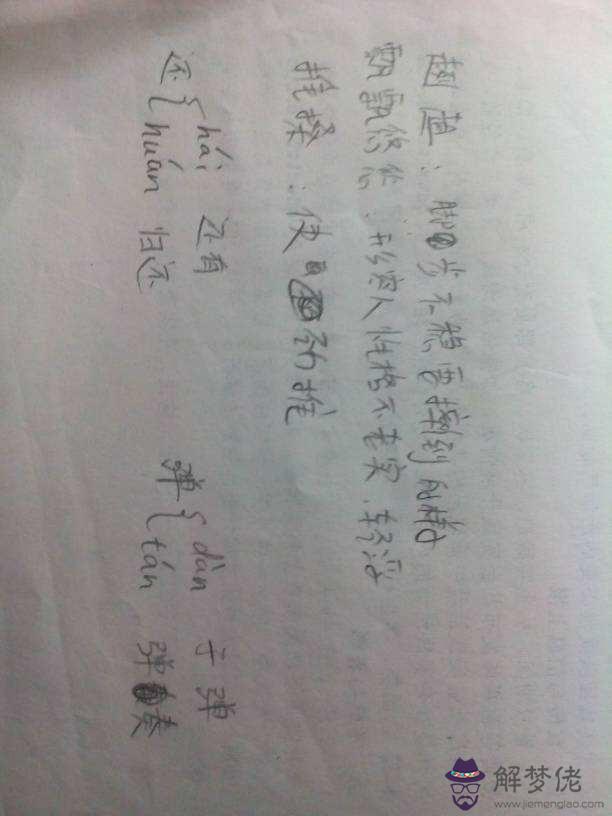 ：脚步不稳要摔倒的样子
悠悠：形容人性格不老实、轻浮
推搡：使劲推
还{ hái 还有 弹{ dàn 子弹
huán 归还 tán 弹奏
解梦佬
www.jiemenglao.com